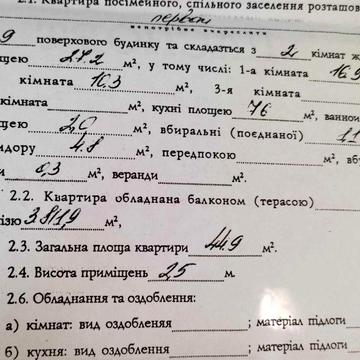 2.1. Квартира посімейного, спільного заселення розташов
первом
непотрібне викреслити
9 поверхового будинку та складається з 2 кімнат ж
щею 27.2 м², у тому числі: 1-а кімната 16,9
кімната 10,3 м², 3-я кімната
кімната м², кухні площею 76 м², ванної
щею 2,0 м², вбиральні (поєднаної) 1,1
идору 4.8 м², передпокою м², вб
и 0,3 м², веранди м².
2.2. Квартира обладнана балконом (терасою)
ізю 3.8/1,9 м²,
2.3. Загальна площа квартири 44.9 м².
2.4. Висота приміщень 2,5 м.
2.6. Обладнання та оздоблення:
а) кімнат: вид оздоблення ; матеріал підлоги
б) кухня: вид оздоблення ; матеріал підлоги